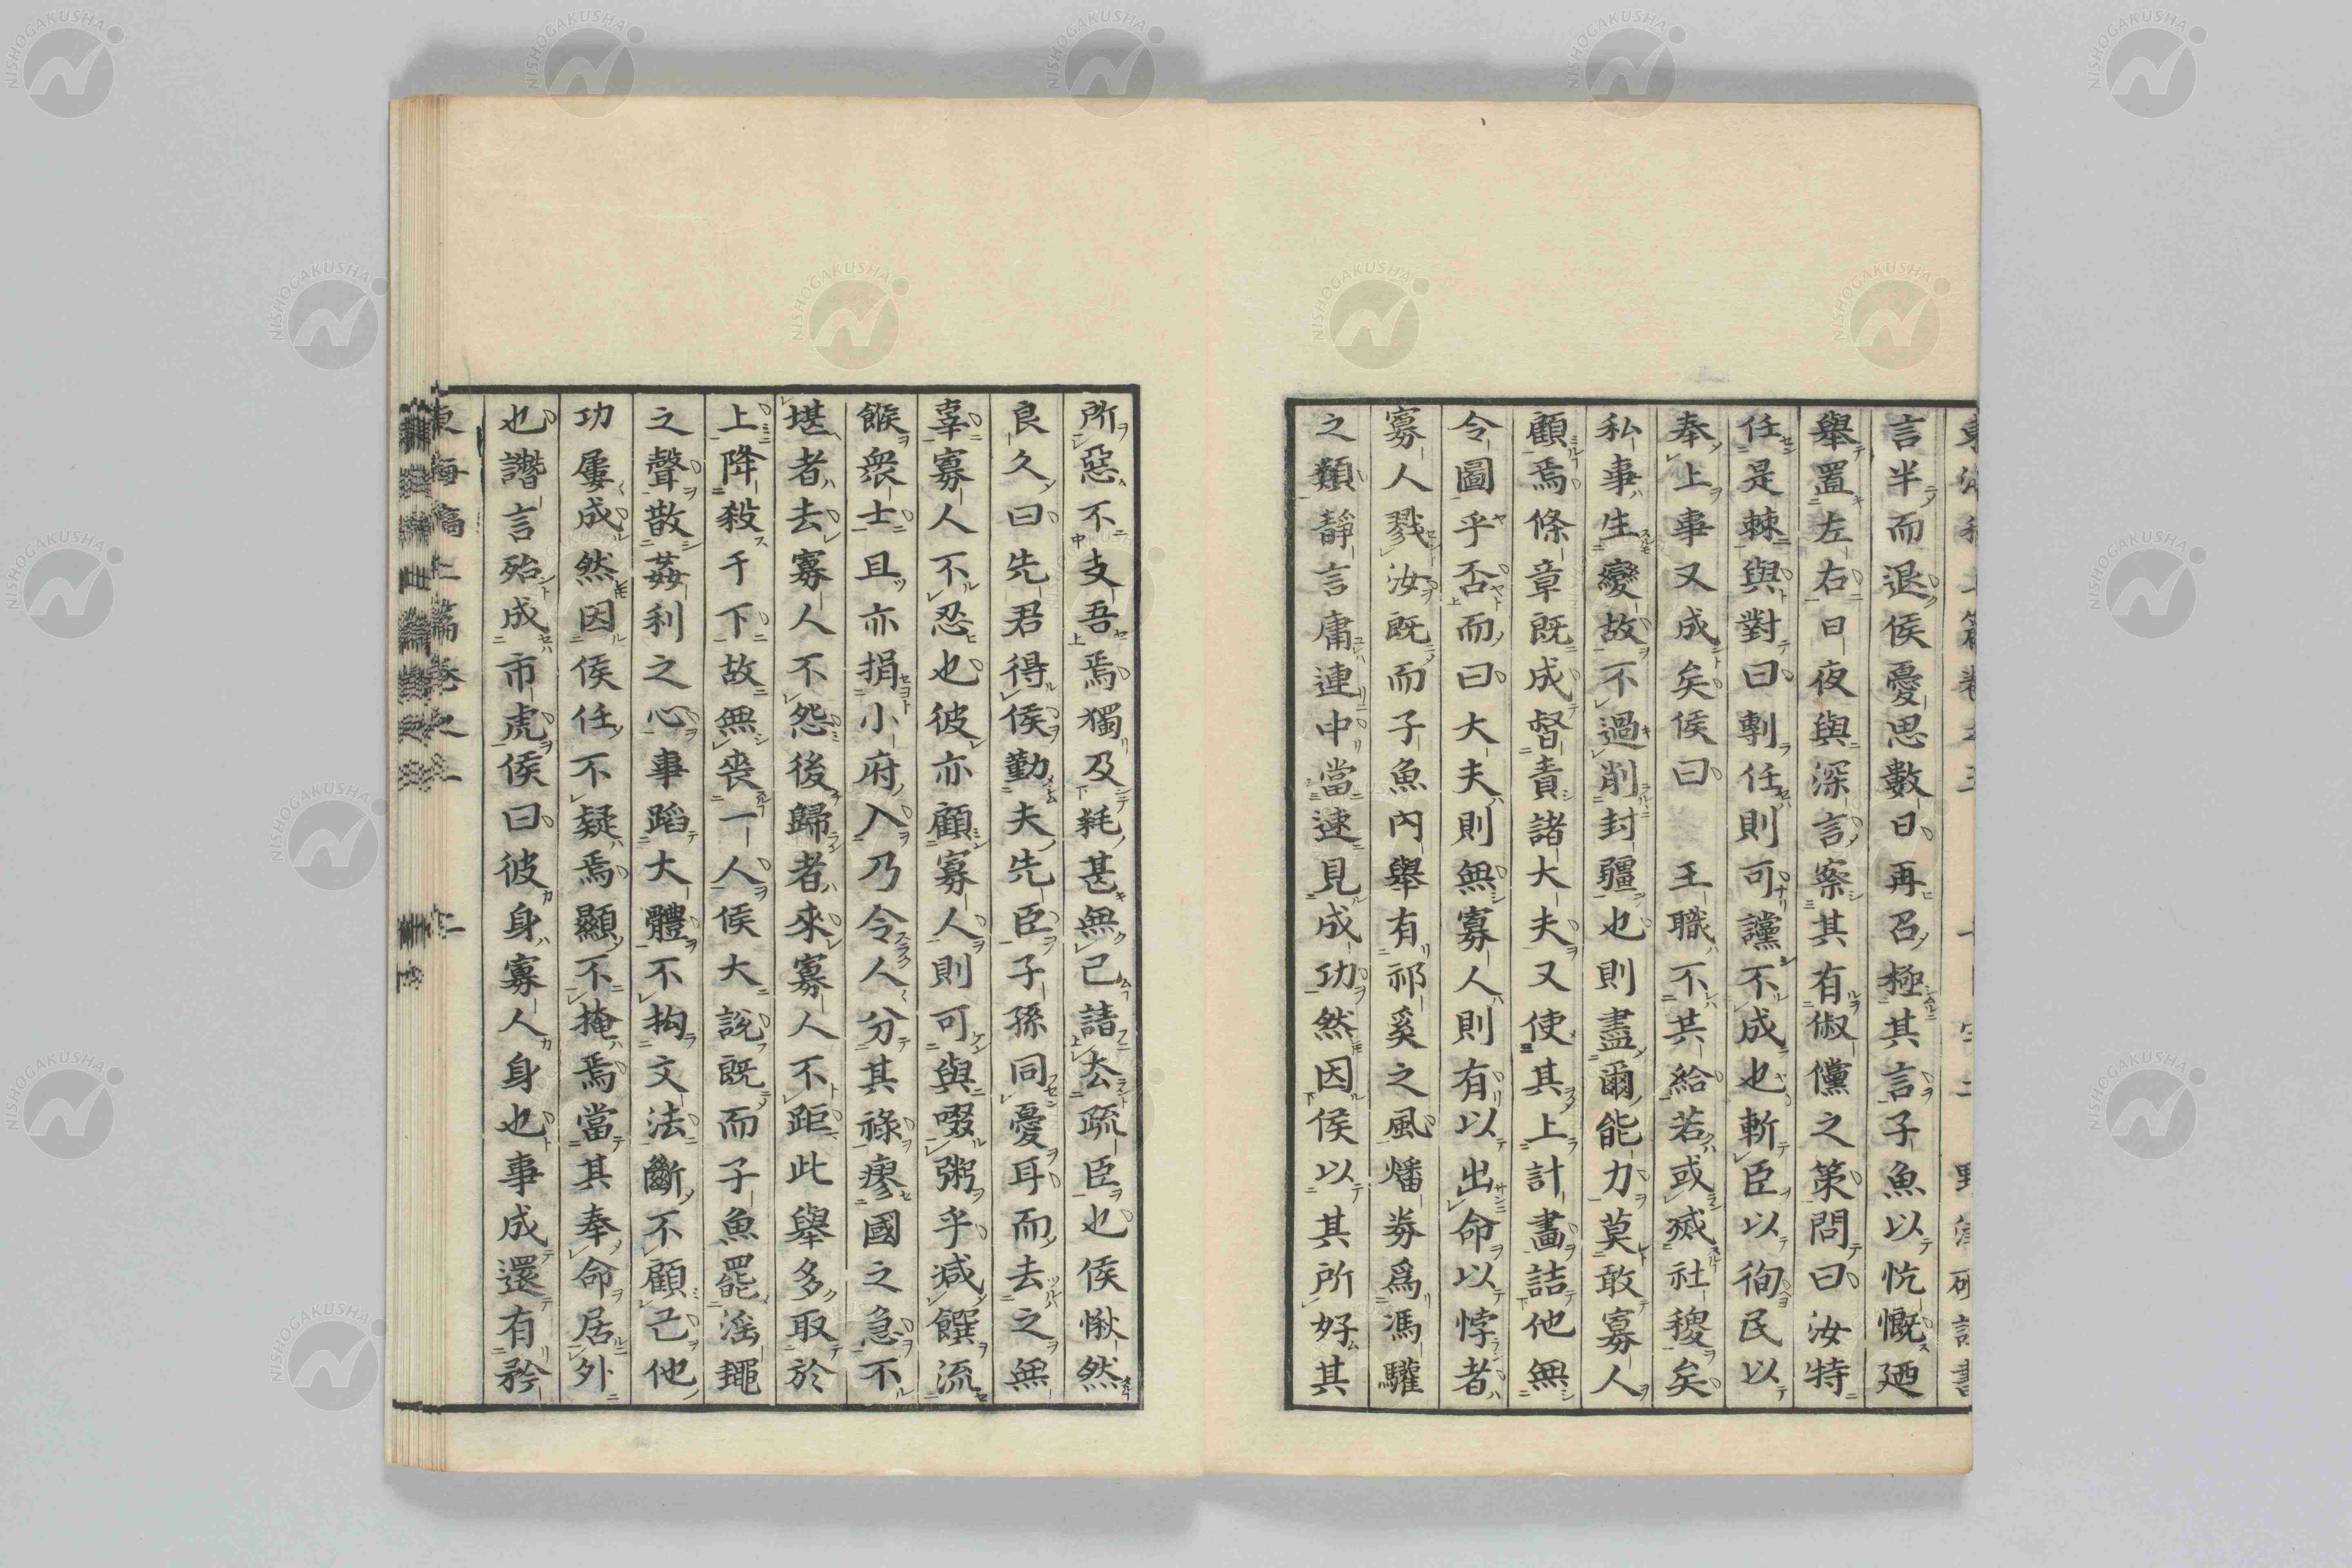 言半而退侯憂思數日再召極其言子魚以忼慨廼
擧置左右日夜與深言察其有俶儻之策問曰汝特
任是棘與對曰剸任則可讜不成也斬臣以徇民以
奉上事又成矣侯曰 王職不共給若或滅社稷矣
私事生變故不過削封疆也則盡爾能力莫敢寡人
顧焉條章既成督責諸大夫又使其上計畫詰他無
令圖乎否而曰大夫則無寡人則有以出命以悖者
寡人戮汝既而子魚內舉有祁奚之風燔券爲馮驩
之類靜言庸違中當速見成功然因侯以其所好其
所惡不支吾焉獨及耗甚無已請去疏臣也侯愀然
良久曰先君得侯勤夫先臣子孫同憂耳而去之無
辜寡人不忍也彼亦顧寡人則可與啜粥乎減饌流
餱衆士且亦捐小府入乃令人分其祿瘳國之急不
堪者去寡人不怨後歸者來寡人不距此擧多取於
上降殺千下故無喪一人侯大說既而子魚罷淫蠅
之聲散姦利之心事蹈大體不拘文法斷不顧己他
功屢成然因侯任不疑焉顯不掩焉當其奉命居外
也譖言殆成市虎侯曰彼身寡人身也事成還有矜